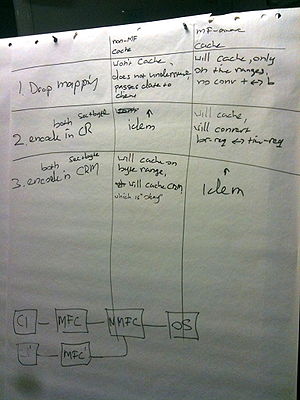 non-MF
cache
mf-aware
cache
1. Drop mapping
won't cache,
does not understand,
passes data to
client
will cache, only
on time ranges,
no conv t ↔ b
both sec+byte
2. encode in CR
↑
idem
will cache,
will convert
both sec+byte
3. encode in CRM
will cache on
byte range,
will cache CRM
which is "okay"
↑
idem
Cl
MFC
NMFC
OS
MFC'